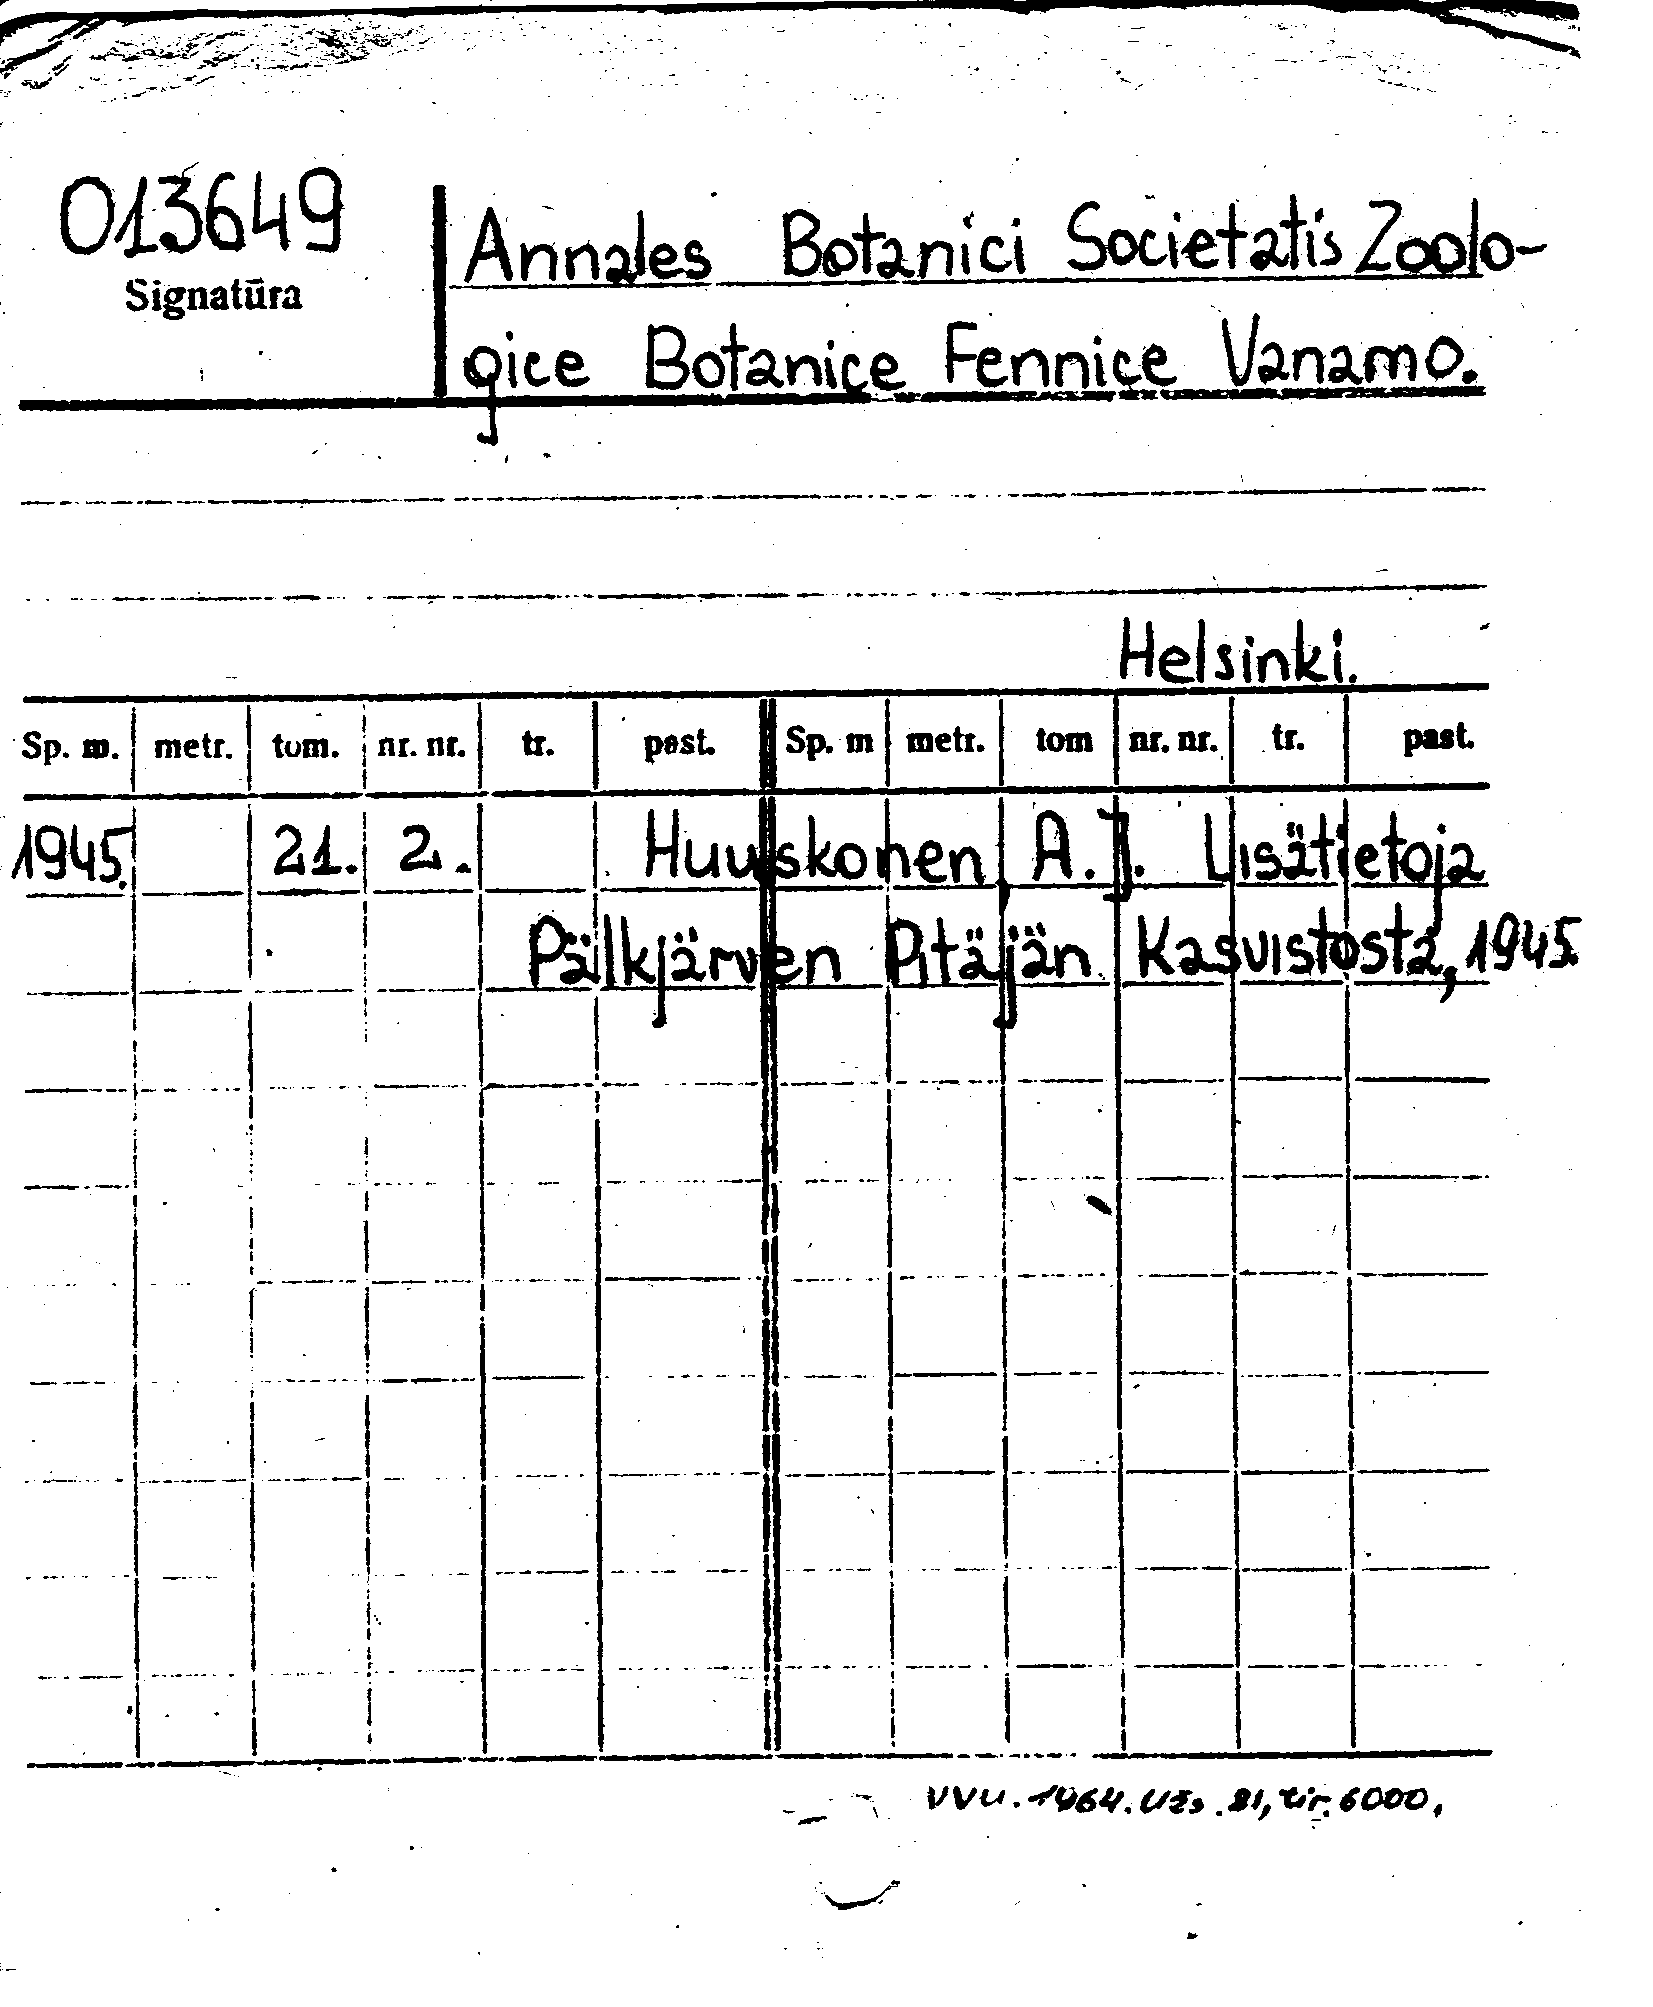 013649
Signatūra
Annales Botanici Societatis Zoolo-
gice Botanice Fennice Vanamo.
Helsinki.
Sp. m. metr. tom. nr. nr. tr. past. Sp. m metr. tom nr. nr. tr. past.
1945. 21. 2. Huuskonen, A.J. Lisätietoja
Pälkjärven Pitäjän Kasvistosta, 1945.
VVU. 1964. Užs. 81, tir. 6000,